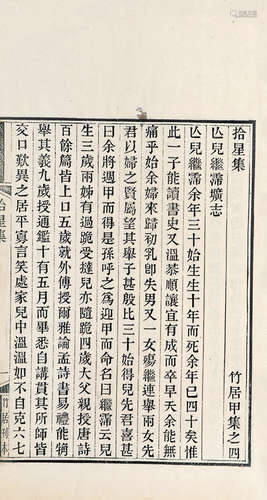 拾星集　竹居甲集之四
亾兒繼霈壙志
亾兒繼霈余年三十始生生十年而死余年已四十矣惟
此一子能讀書史又溫恭順讓宜有成而卒早夭余能無
痛乎始余婦來歸初乳卽失男又一女殤繼連舉兩女先
君以婦之賢屬望其舉子甚殷比三十始得兒先君喜甚
曰余將週甲而始得是孫呼之爲週甲而命名曰繼霈云兒
生三歲兩姊有過跪受撻兒亦隨跪四歲大父親授唐詩
百餘篇皆上口五歲就外傅授爾雅論孟詩書易禮能犄
舉其義九歲授通鑑十有五月而畢悉自講貫其所師皆
交口歎異之居平寡言笑處家兒中溫溫如不自克六七
拾星集
竹居